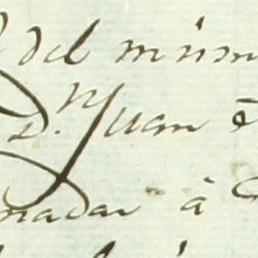 del mism
D.ⁿ Juan
nadar à